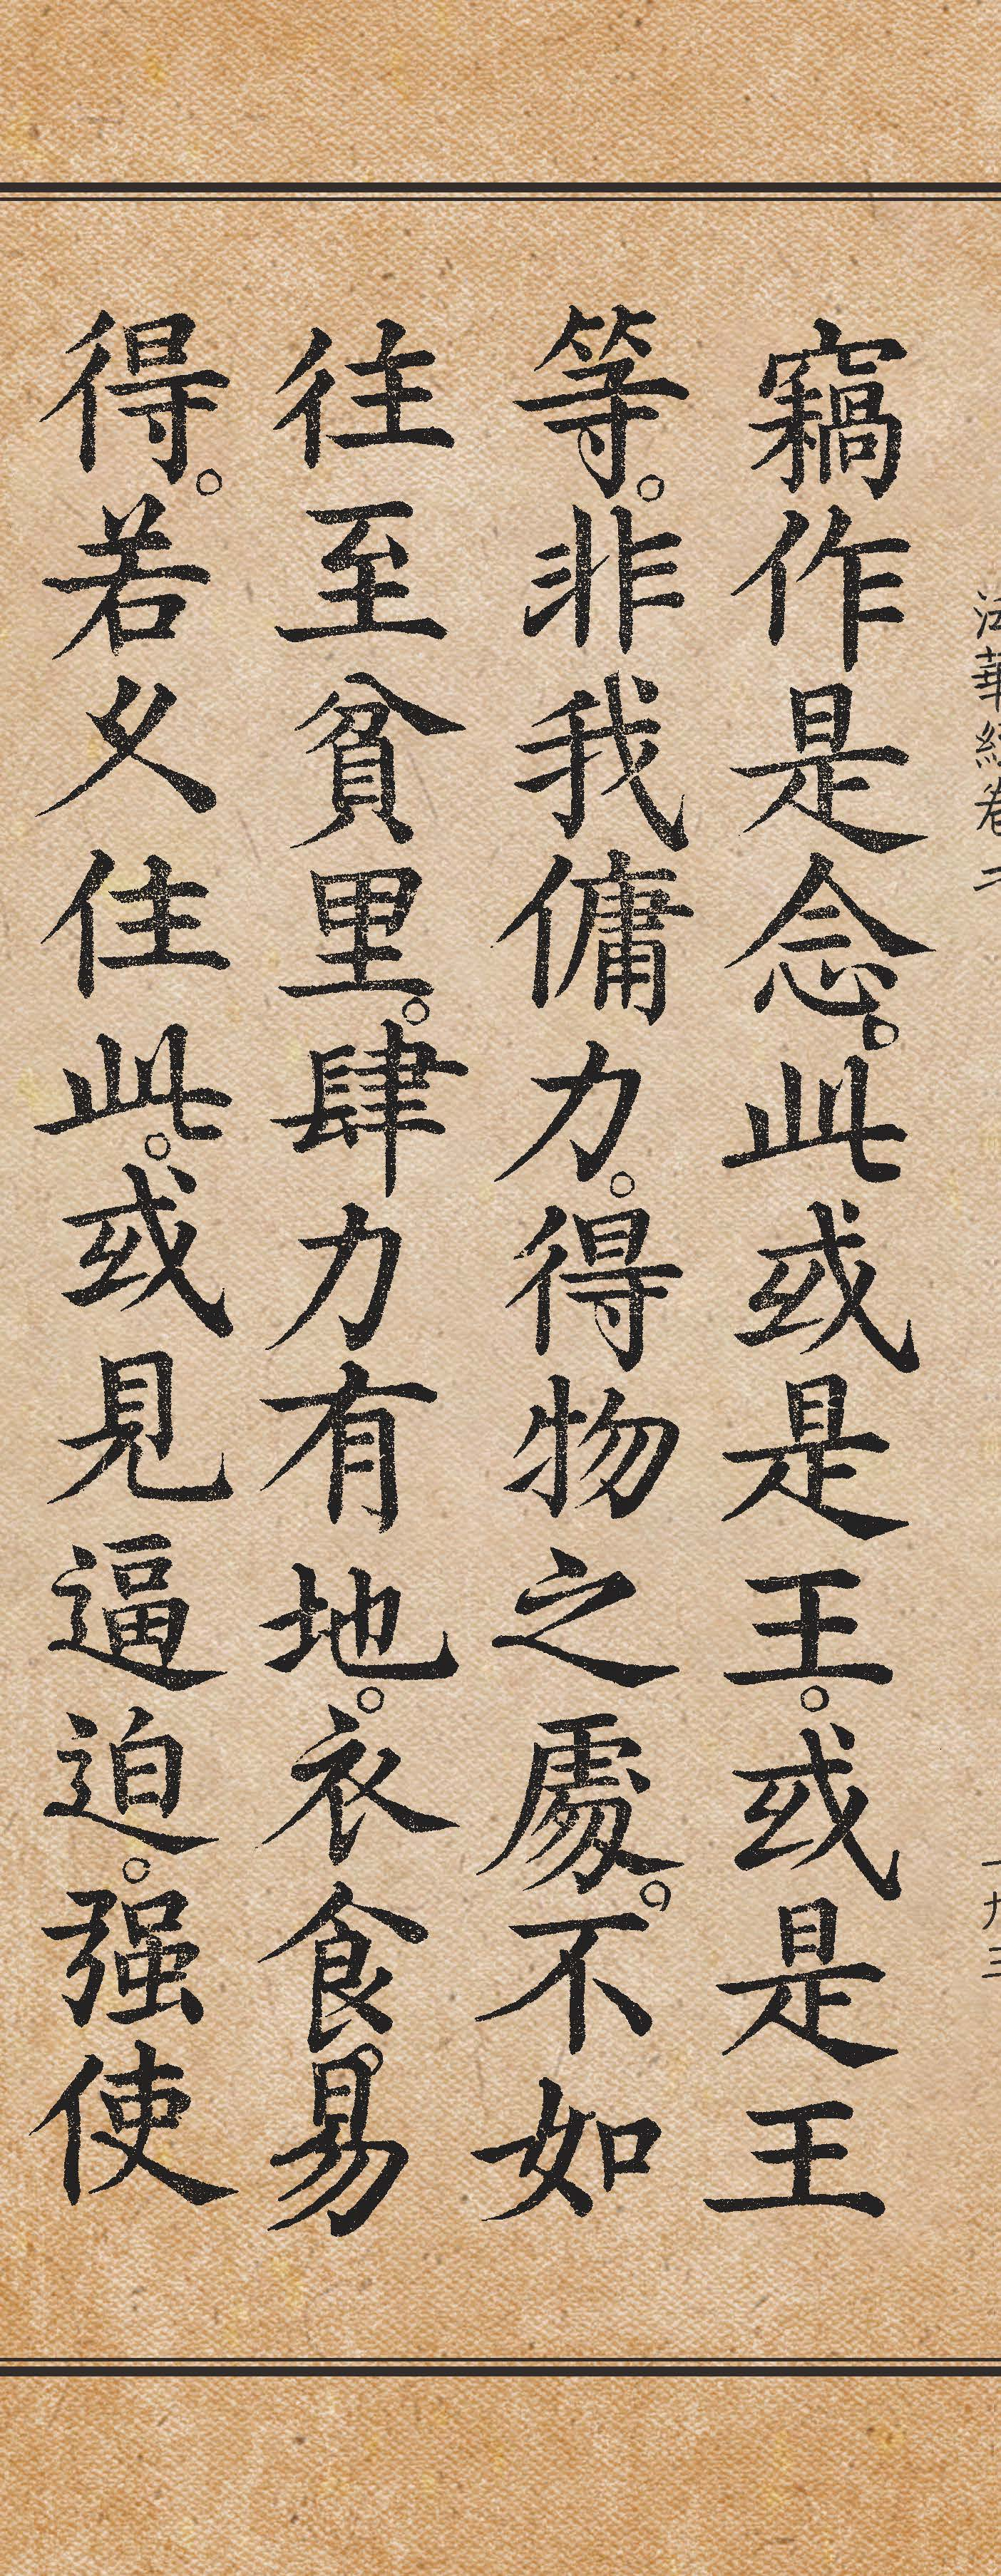 法華經卷二
竊作是念。此或是王。或是王
等。非我傭力。得物之處。不如
往至貧里。肆力有地。衣食。易
得。若久住此。或見逼迫。强使